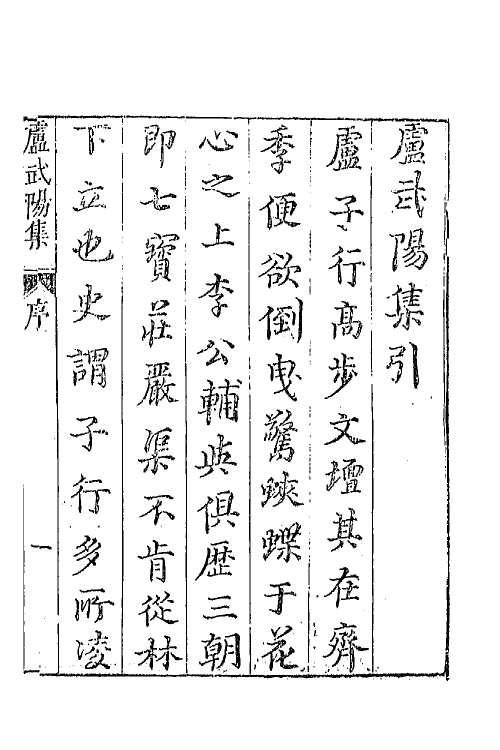 盧武陽集引
盧子行高步文壇其在齊
季便欲倒曳驚蛺蝶于花
心之上李公輔與俱歷三朝
即七寶莊嚴渠不肯從林
下立也史謂子行多所凌
盧武陽集 序 一